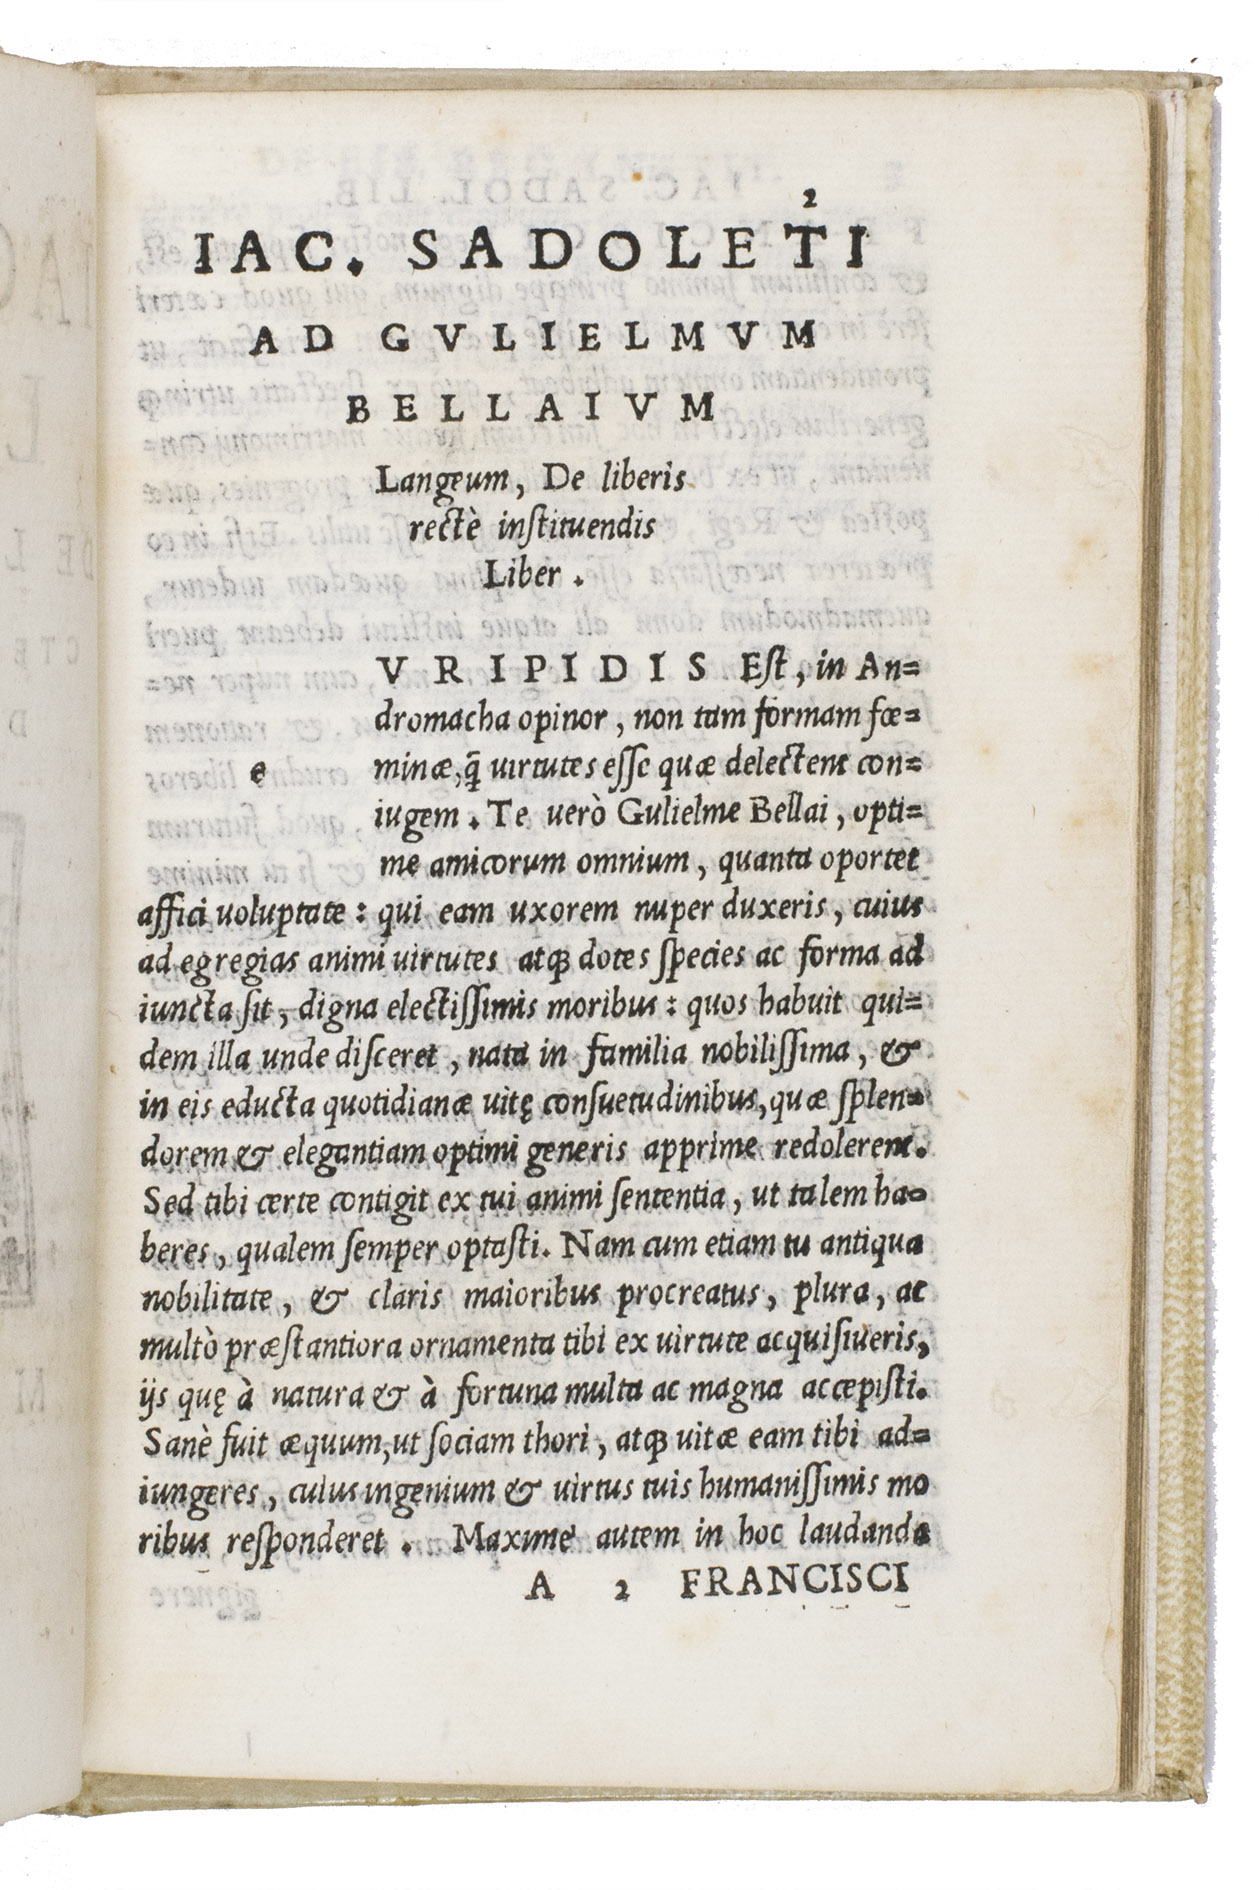 2
IAC. SADOLETI
AD GVLIELMVM
BELLAIVM
Langeum, De liberis
rectè inſtituendis
Liber.
VRIPIDIS Eſt, in An=
dromacha opinor, non tam formam fœ=
e minæ, q̃ uirtutes eſſe quæ delectent con=
iugem. Te uerò Gulielme Bellai, opti=
me amicorum omnium, quanta oportet
affici uoluptate: qui eam uxorem nuper duxeris, cuius
ad egregias animi uirtutes atq; dotes ſpecies ac forma ad
iuncta ſit, digna electiſſimis moribus: quos habuit qui=
dem illa unde diſceret, nata in familia nobiliſſima, &
in eis educta quotidianæ uitę conſuetudinibus, quæ ſplen=
dorem & elegantiam optimi generis apprime redolerent.
Sed tibi certe contigit ex tui animi ſententia, ut talem ha=
beres, qualem ſemper optaſti. Nam cum etiam tu antiqua
nobilitate, & claris maioribus procreatus, plura, ac
multò præſtantiora ornamenta tibi ex uirtute acquiſiueris,
ijs quę à natura & à fortuna multa ac magna accepiſti.
Sanè fuit æquum, ut ſociam thori, atq; uitæ eam tibi ad=
iungeres, cuius ingenium & uirtus tuis humaniſſimis mo
ribus reſponderet. Maxime autem in hoc laudanda
A 2 FRANCISCI